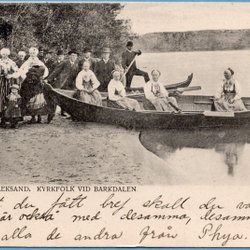 EKSAND. KYRKFOLK VID BARKDALEN.
du fått bref skall du
också med desamma, desamma
alla de andra från